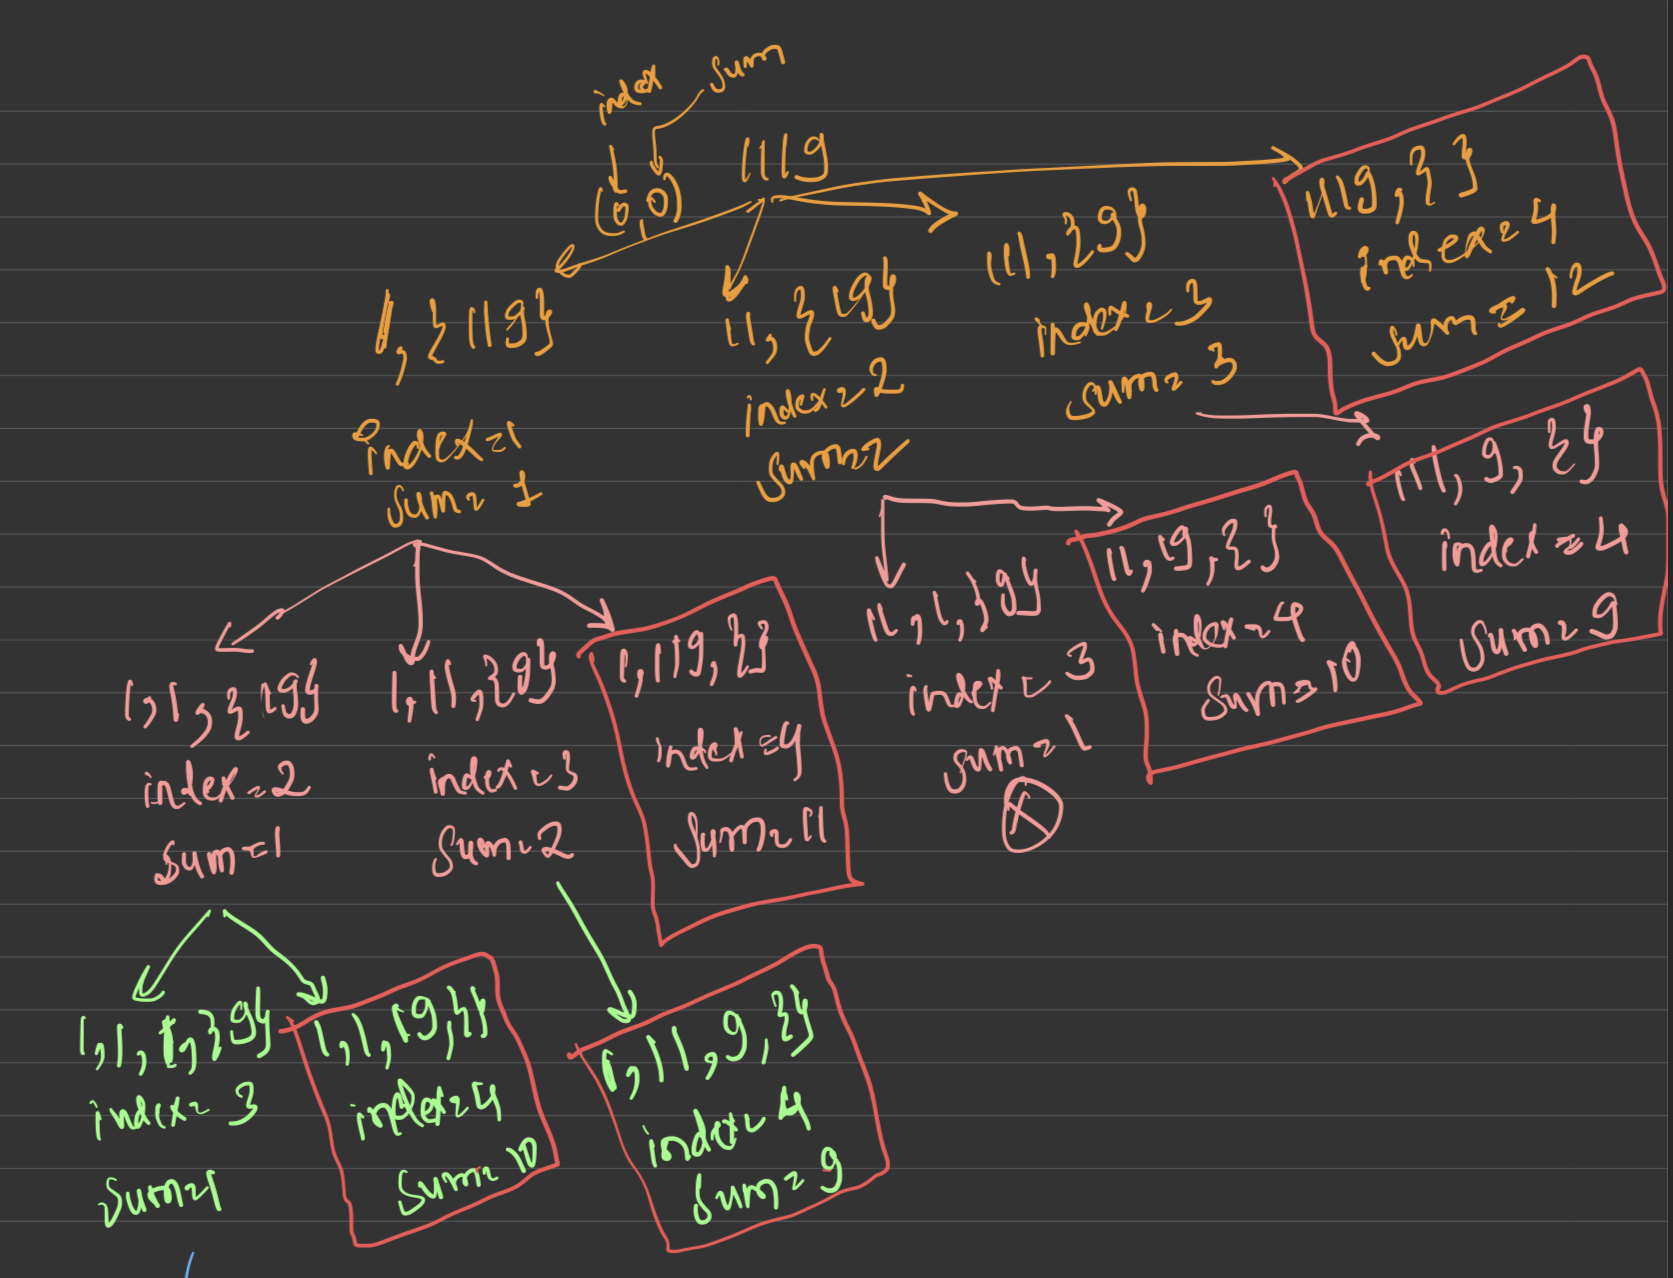 index sum
(0,0) 1119
1, {119}
index=1
sum=1
11, {19}
index=2
sum=2
111, {9}
index=3
sum=3
1119, { }
index=4
sum=12
1,1, {19}
index=2
sum=1
1,11, {9}
index=3
sum=2
1,119, {}
index=4
sum=11
11,1, }9}
index=3
sum=1
11,19, {}
index=4
sum=10
111, 9, {}
index=4
sum=9
1,1,1, }9}
index=3
sum=1
1,1,19, {}
index=4
sum=10
1,11,9, {}
index=4
sum=9